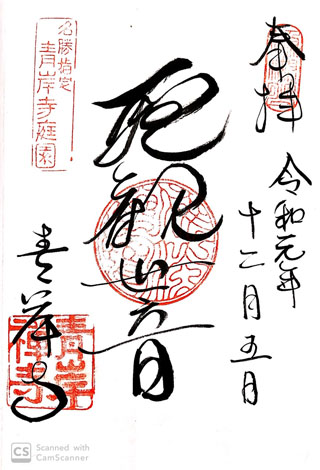 奉拝
令和元年
十二月五日
聖観世音
名勝指定
青岸寺庭園
青岸寺
青岸
禅寺
CS Scanned with
CamScanner